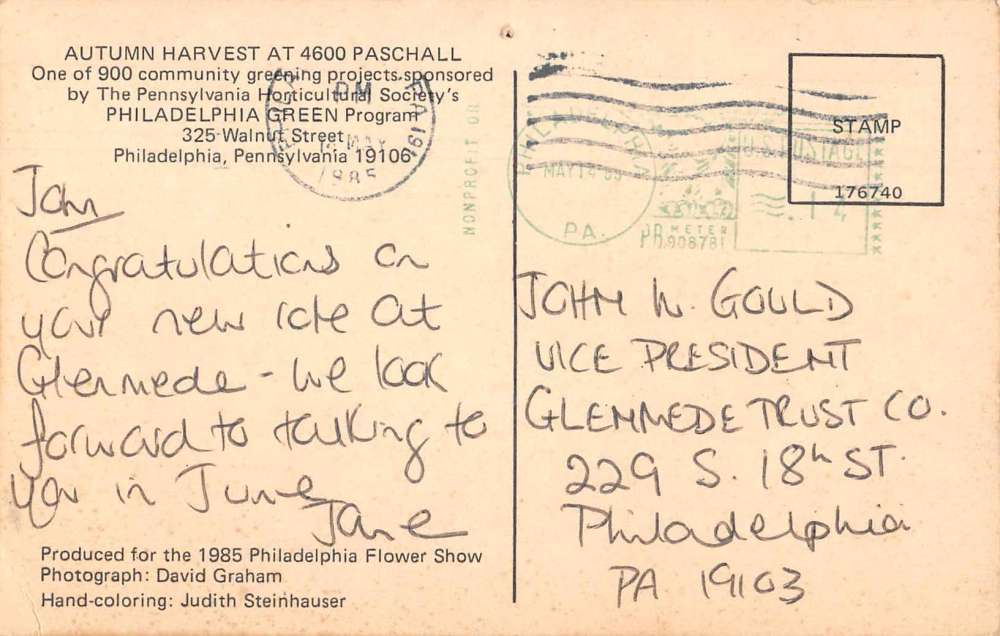 AUTUMN HARVEST AT 4600 PASCHALL
One of 900 community greening projects sponsored
by The Pennsylvania Horticultural Society's
PHILADELPHIA GREEN Program
325 Walnut Street
Philadelphia, Pennsylvania 19106
PM
PA 191
MAY
1985
NONPROFIT OR
PHILADELPHIA
MAY 14 85
PA.
U.S. POSTAGE
.14
PB METER
908781
STAMP
176740
John
Congratulations on
your new role at
Glenmede - we look
forward to talking to
you in June
Jane
JOHN W. GOULD
VICE PRESIDENT
GLENMEDE TRUST CO.
229 S. 18th ST.
Philadelphia
PA 19103
Produced for the 1985 Philadelphia Flower Show
Photograph: David Graham
Hand-coloring: Judith Steinhauser